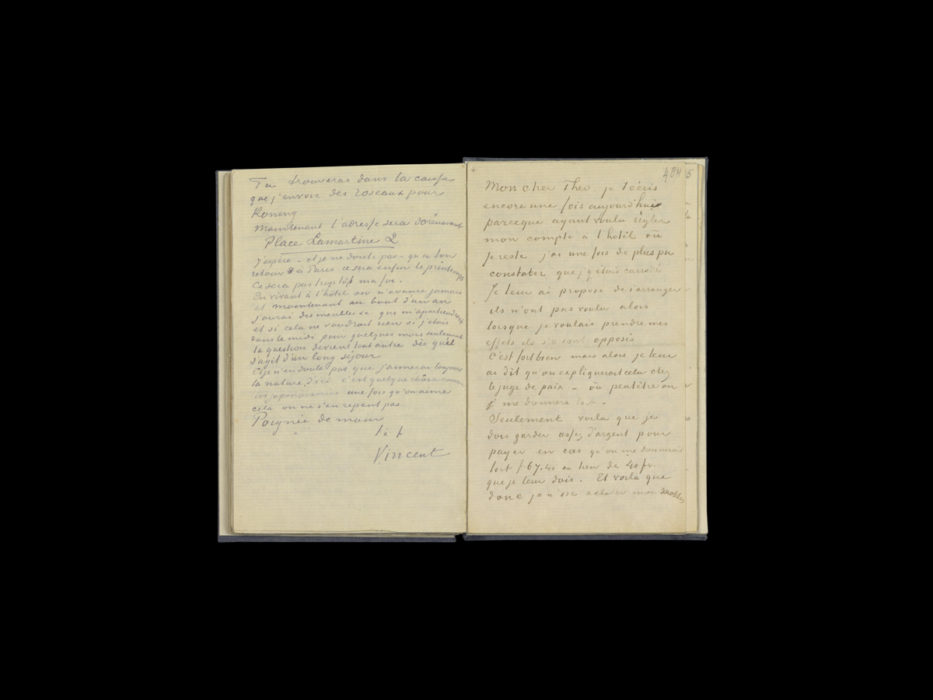 Tu trouveras dans la caisse
que j'envoie des roseaux pour
Koning
Maintenant l'adresse sera dorénavant
Place Lamartine 2
J'espère – et je ne doute pas – qu'à ton
retour à Paris ce sera enfin le printemps
Ce sera pas trop tôt ma foi.
En vivant à l'hôtel on n'avance jamais
et maintenant au bout d'un an
j'aurai des meubles &c. qui m'appartiendront
et si cela ne vaudrait rien si j'étais
dans le midi pour quelques mois seulement
la question devient tout autre dès qu'il
s'agit d'un long séjour
Et je n'en doute pas que j'aimerai toujours
la nature d'ici c'est quelque chôse comme
une fois qu'on aime
cela on ne s'en repent pas
Poignée de main
t. à t.
Vincent
484 5
Mon cher Theo, je t'écris
encore une fois aujourd'hui
parceque ayant voulu régler
mon compte à l'hôtel où
je reste j'ai une fois de plus pu
constater que j'y étais
Je leur ai proposé de s'arranger
ils n'ont pas voulu alors
lorsque je voulais prendre mes
effets ils s'y sont opposés
C'est fort bien mais alors je leur
ai dit qu'on expliquerait cela chez
le juge de paix – où peutêtre on
me donnera tort.
Seulement voila que je
dois garder assez d'argent pour
payer en cas qu'on me donnera
tort f 67.40 au lieu de 40 fr.
que je leur dois. Et voilà que
donc je n'ose acheter mon matelas